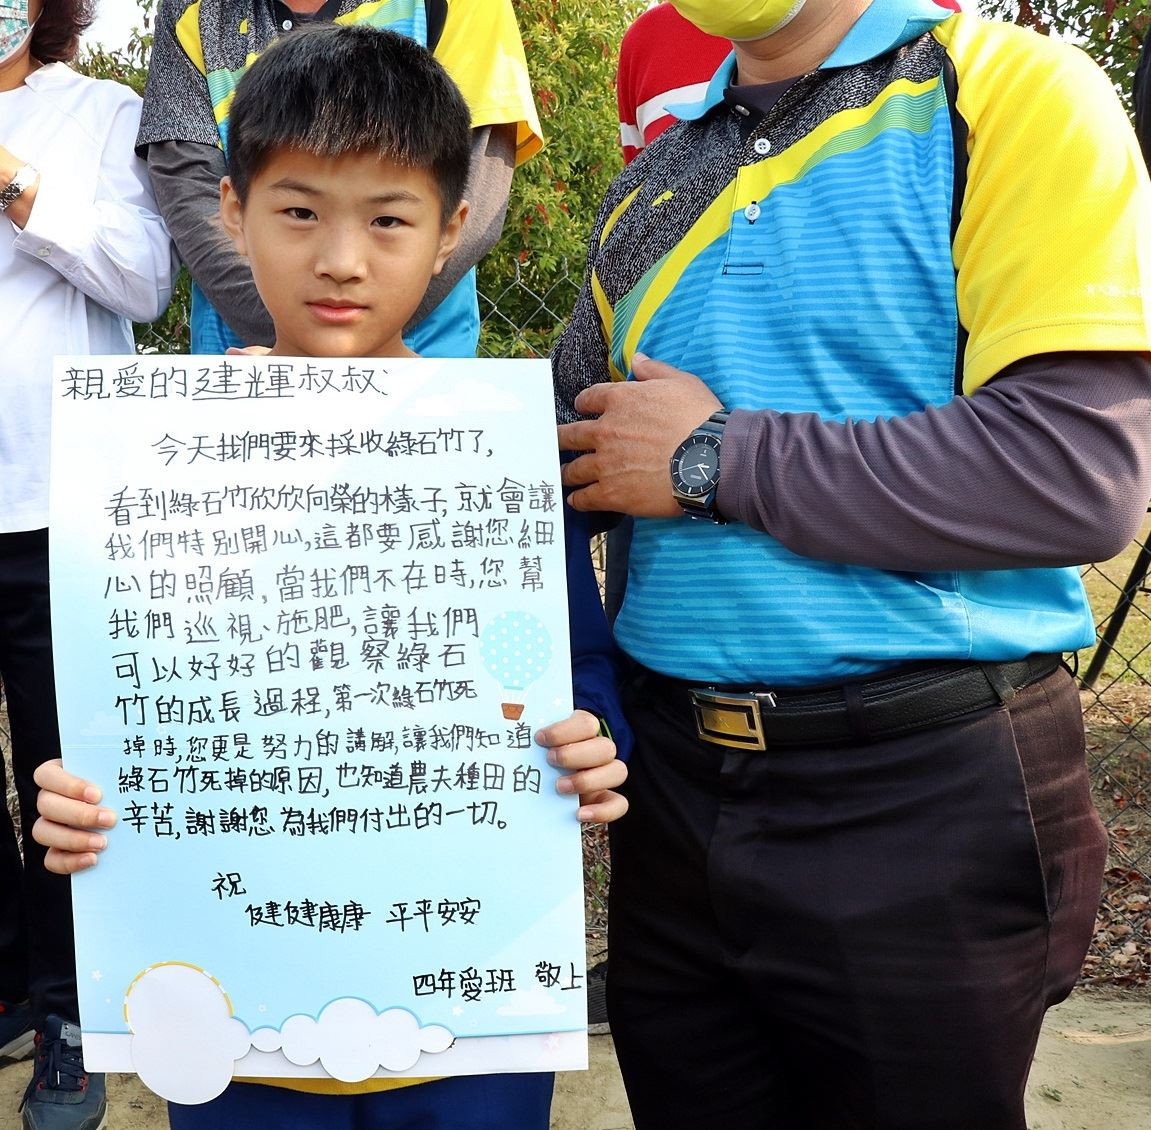 親愛的建輝叔叔:
今天我們要來採收綠石竹了,
看到綠石竹欣欣向榮的樣子,就會讓
我們特別開心,這都要感謝您細
心的照顧,當我們不在時,您幫
我們巡視、施肥,讓我們
可以好好的觀察綠石
竹的成長過程,第一次綠石竹死
掉時,您更是努力的講解,讓我們知道
綠石竹死掉的原因,也知道農夫種田的
辛苦,謝謝您為我們付出的一切。
祝
健健康康 平平安安
四年愛班 敬上